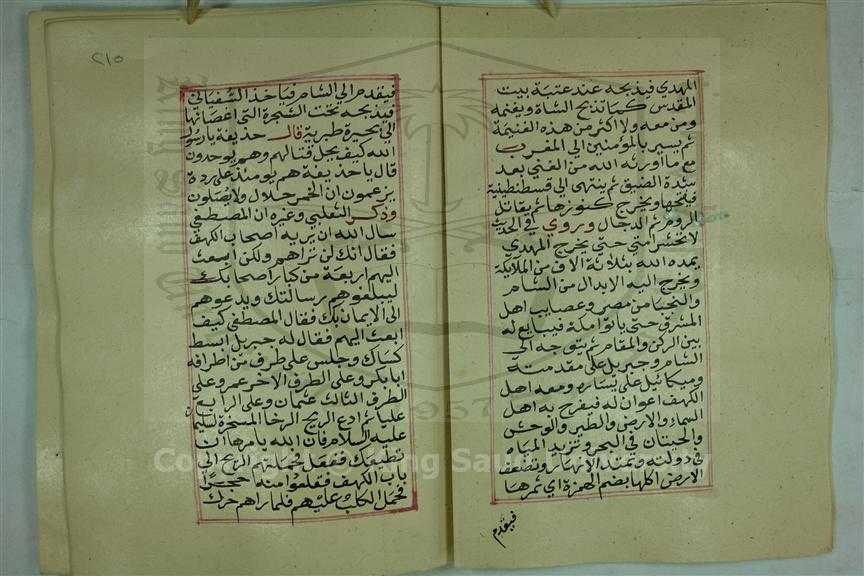 المهدي فيذبحه عند عتبة بيت
المقدس كما تذبح الشاة ويغنمه
ومن معه ولا اكثر من هذه الغنيمة
ثم يسير بالمؤمنين الي المغرب
مع ما اورثه الله من الغني بعد
شدة الضيق ثم ينتهي الي قسطنطينية
فيفتحها ويخرج كنوزها ثم يقاتل
الروم ثم الدجال وروي في الحديث
لا تحشر امتي حتي يخرج المهدي
يمده الله بثلاثة الاف من الملايكة
ويخرج اليه الابدال من الشام
والنجبا من مصر وعصايب اهل
المشرق حتي ياتوا مكة فيبايع له
بين الركن والمقام ثم يتوجه الي
الشام وجبريل علي مقدمته
وميكائيل علي يساره ومعه اهل
الكهف اعوان له فيفرح به اهل
السماء والارض والطير والوحش
والحيتان في البحر وتزيد المياه
في دولته وتمتد الانهار وتضعف
الارض اكلها بضم الهمزة اي ثمرها
فيقدم
٢١٥
فيقدم الي الشام فياخذ السفياني
فيذبحه تحت الشجرة التي اغصانها
الي بحيرة طبرية قال حذيفة يارسول
الله كيف يحل قتالهم وهم يوحدون
قال يا حذيفة هم يومئذ علي ردة
يزعمون ان الخمر حلال ولا يصلون
وذكر الثعلبي وغيره ان المصطفي
سال الله ان يريه اصحاب الكهف
فقال انك لن تراهم ولكن ابعث
اليهم اربعة من كبار اصحابك
ليبلغوهم رسالتك ويدعوهم
الي الايمان بك فقال المصطفي كيف
ابعث اليهم فقال له جبريل ابسط
كساك وجلس علي طرف من اطرافه
ابا بكر وعلي الطرف الاخر عمر وعلي
الطرف الثالث عثمان وعلي الرابع
عليا ثم ادع الريح الرخا المسخرة لسليمان
عليه السلام فان الله يامرها ان
تطيعك ففعل فحملتهم الريح الي
باب الكهف فقلعوا منه حجرا
فحمل الكلب عليهم فلما راهم حرك